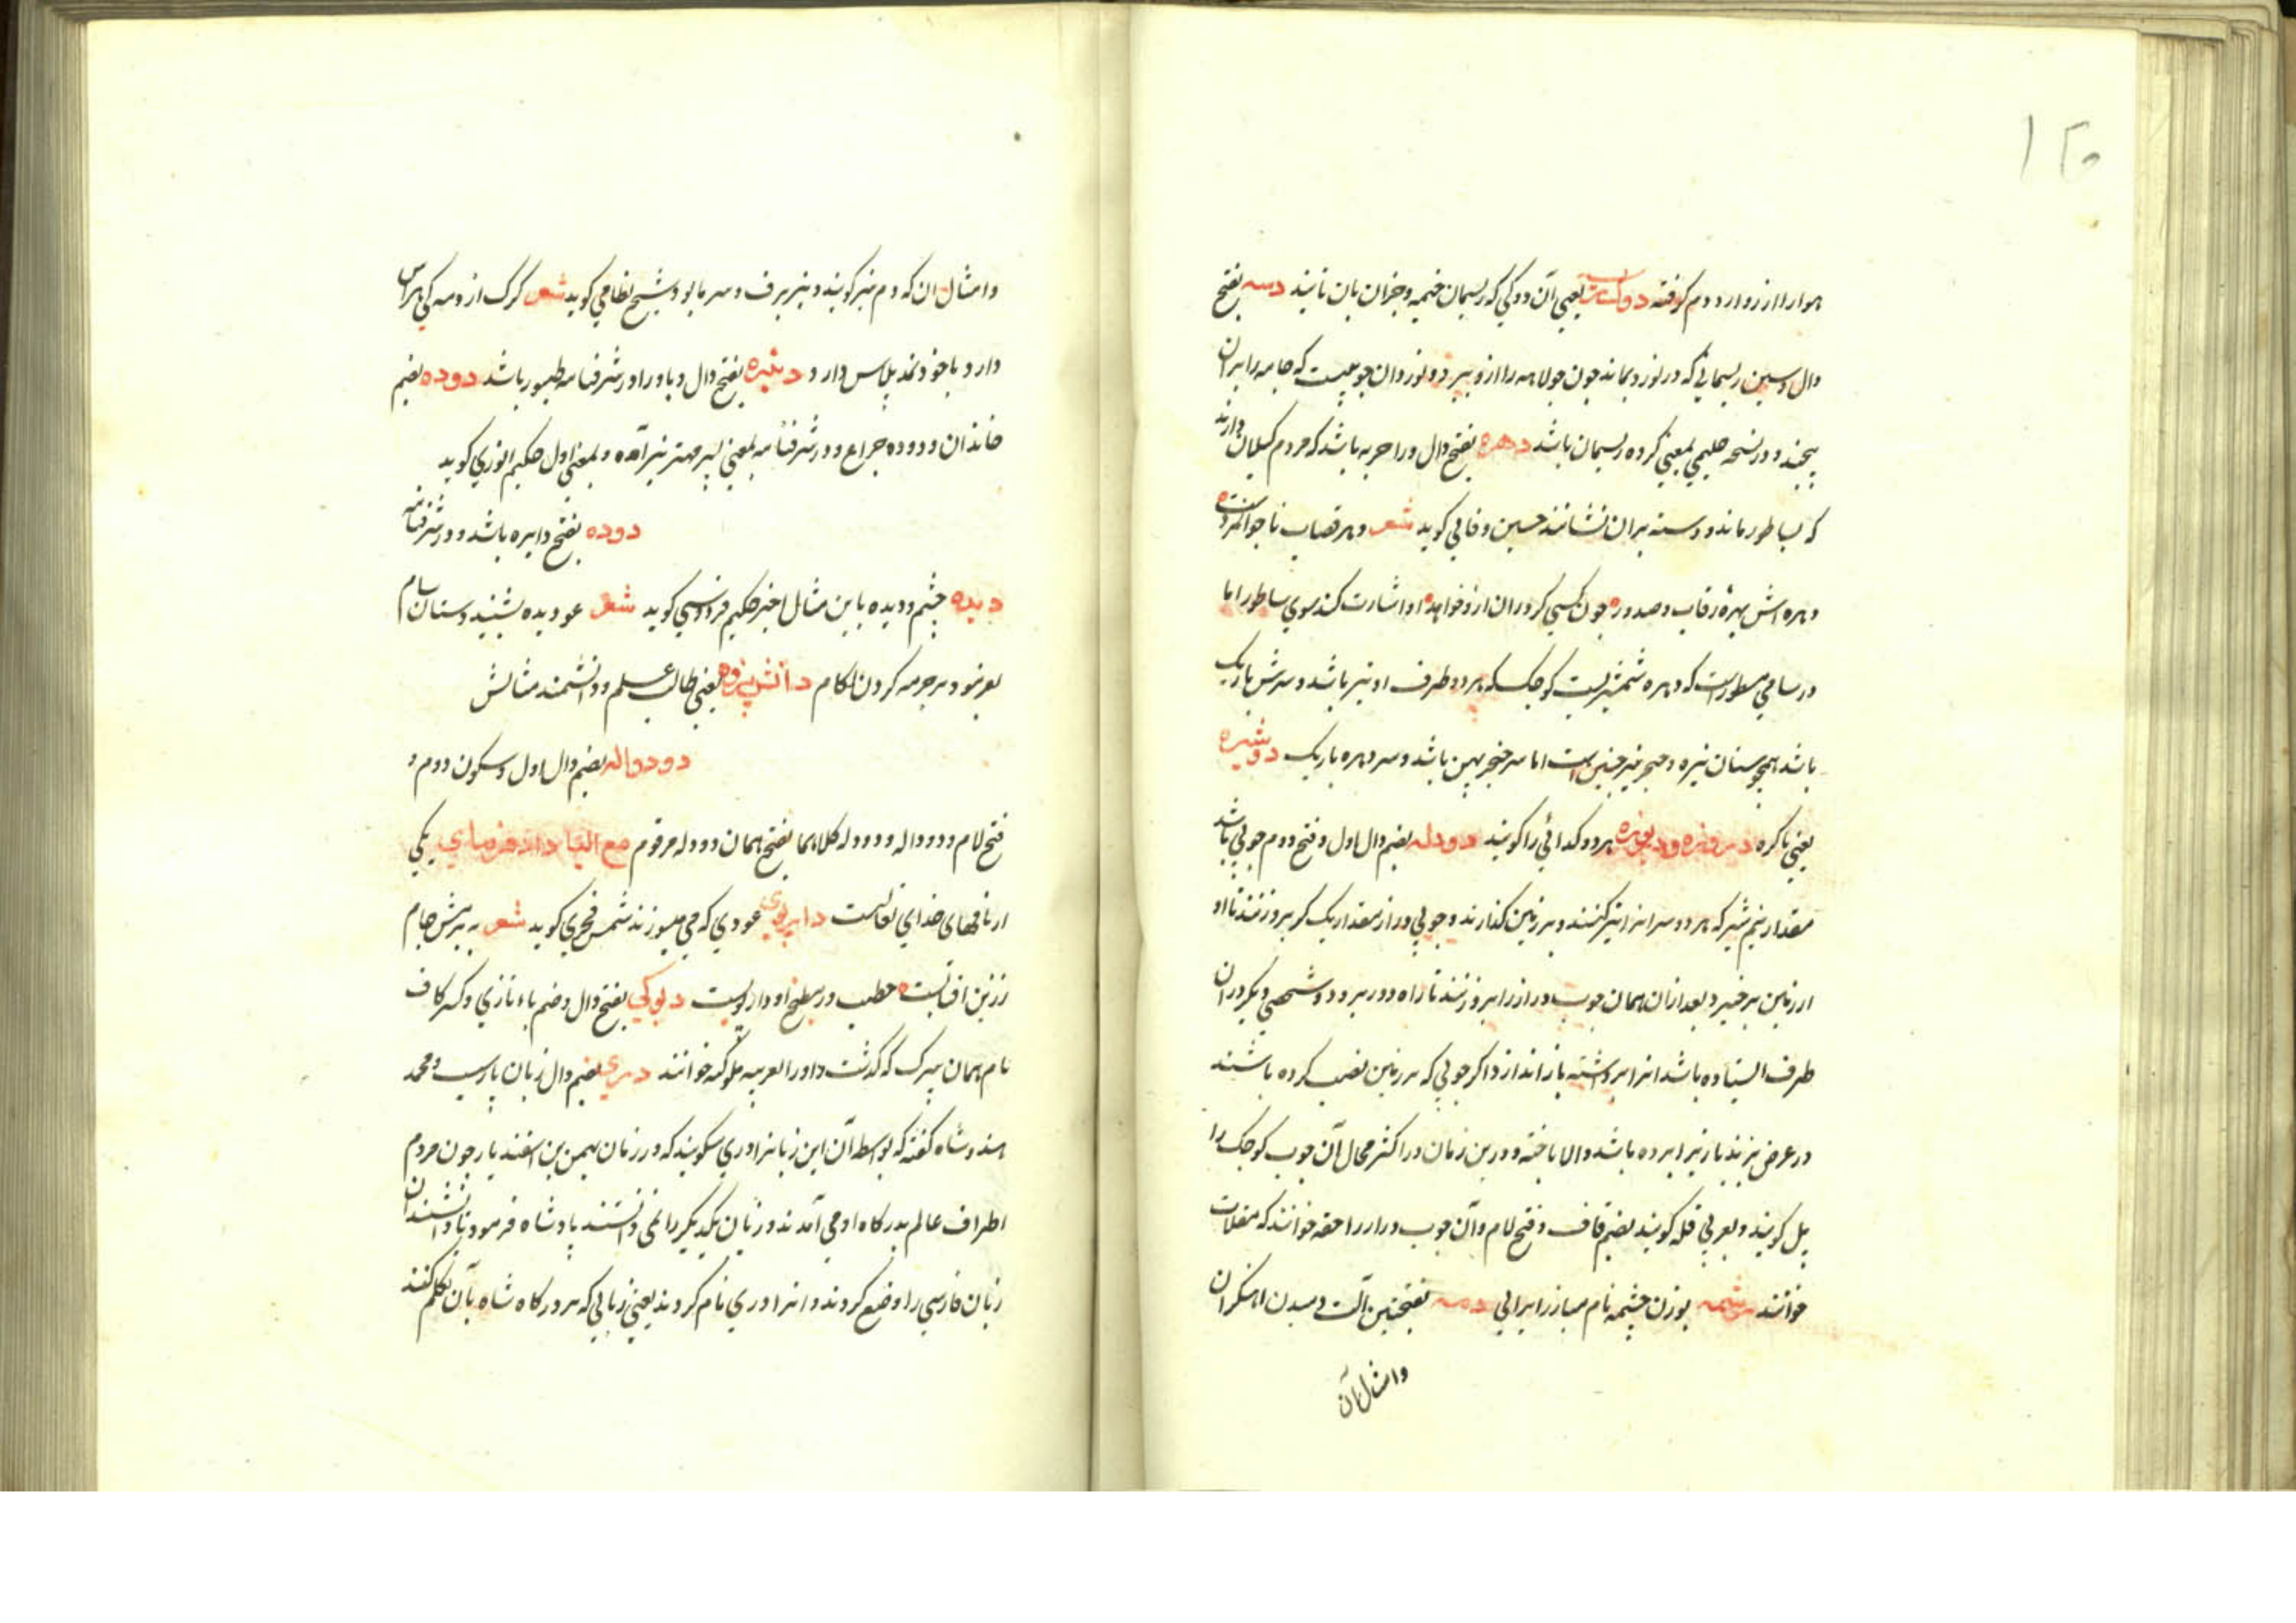 ۱۲۰
دوم کوفته یعنی آن دوکی که ریسمان خیمه و جز آن بآن تابند دسه بفتح
دال و سین ریسمانی که در نورد بماند چون جولاهه را از و نورد آن چوبیست که جامه را بر آن
پیچند و در نسخه حلیمی بمعنی کروه ریسمان باشد دهره بفتح دال و را حربه باشد که مردم کیلان دارند
که بساطور ماند و دسته بر آن نشانند حسین وفائی کوید شعر
دهره اش بهره رقاب و صدور چون کسی او اشارت کند سوی ساطور اما
در سامی مسطور است که دهره شمشیریست کوچک که هر دو طرف او تیز باشد و سرش باریک
باشد همچو سنان نیزه و خنجر نیز چنین است اما سر خنجر پهن باشد و سر دهره باریک دوشیزه
یعنی باکره دریوزه و دریوزه هر دو کدائی را کویند دودله بضم دال اول و فتح دوم چوبی باشد
مقدار نیم شبر که هر دو سر انرا تیز کنند و بر زمین کذارند و چوبی دراز مقدار یک کز بر و زنند تا او
از زمین بر خیزد بعد از ان همان چوب دراز را بر و زنند تا راه دور برود و شخصی دیکر در ان
طرف ایستاده باشد انرا برداشته باز اندازد اکر چوبی که بر زمین نصب کرده باشند
در عرض بزند بازی را برده باشد والا باخته و درین زمان در اکثر محال آن چوب کوچک را
پل کویند و بعربی قله کویند بضم قاف و فتح لام و آن چوب دراز را مقله خوانند که مقلات
خوانند بوزن چشمه نام مبارز ایرانی دمه بفتحتین آلت دمیدن اهنکران
وامثال آن
وامثال ان که دم نیز کویند و نیز برف و سرما بود شیخ نظامی کوید شعر کرک از دمه کر هراس
دارد با خود نمد پلاس دارد بفتح دال و با و را و در شرفنامه طیور باشد دوده بضم
خاندان و دوده چراغ و در شرفنامه بمعنی پسر مهتر نیز آمده و بمعنی اول حکیم انوری کوید
دوده بفتح دایره باشد و در شرفنامه
دیده چشم و دیده بان مثال اخیر حکیم فردوسی کوید شعر عو دیده بشنید دستان سام
بفرمود بر چرمه کردن لکام دانش پژوه یعنی طالب علم و دانشمند مثالش
دودواله بضم دال اول و سکون دوم و
فتح لام و دودواله و دودله کلاهما بفتح همان دودله مرقوم مع الیا داد فرمای یکی
از نامهای خدای تعالیست عودی که می سوزند شمس فخری کوید شعر به پیش جام
زرین آفتابست حطب در مطبخ او دار بویست بفتح دال و ضم باء تازی و کسر کاف
نام همان که کذشت و او را بعربیه ملوکیه خوانند دری بضم دال زبان پارسیست و محمد
هندوشاه کفته که بواسطه آن این زبانرا دری میکویند که در زمان بهمن بن اسفندیار چون مردم
اطراف عالم بدرکاه او می آمدند و زبان یکدیکر را نمی دانستند پادشاه فرمود تا دانشمندان
زبان فارسی را وضع کردند و انرا دری نام کردند یعنی زبانی که بر درکاه شاه بآن تکلم کنند